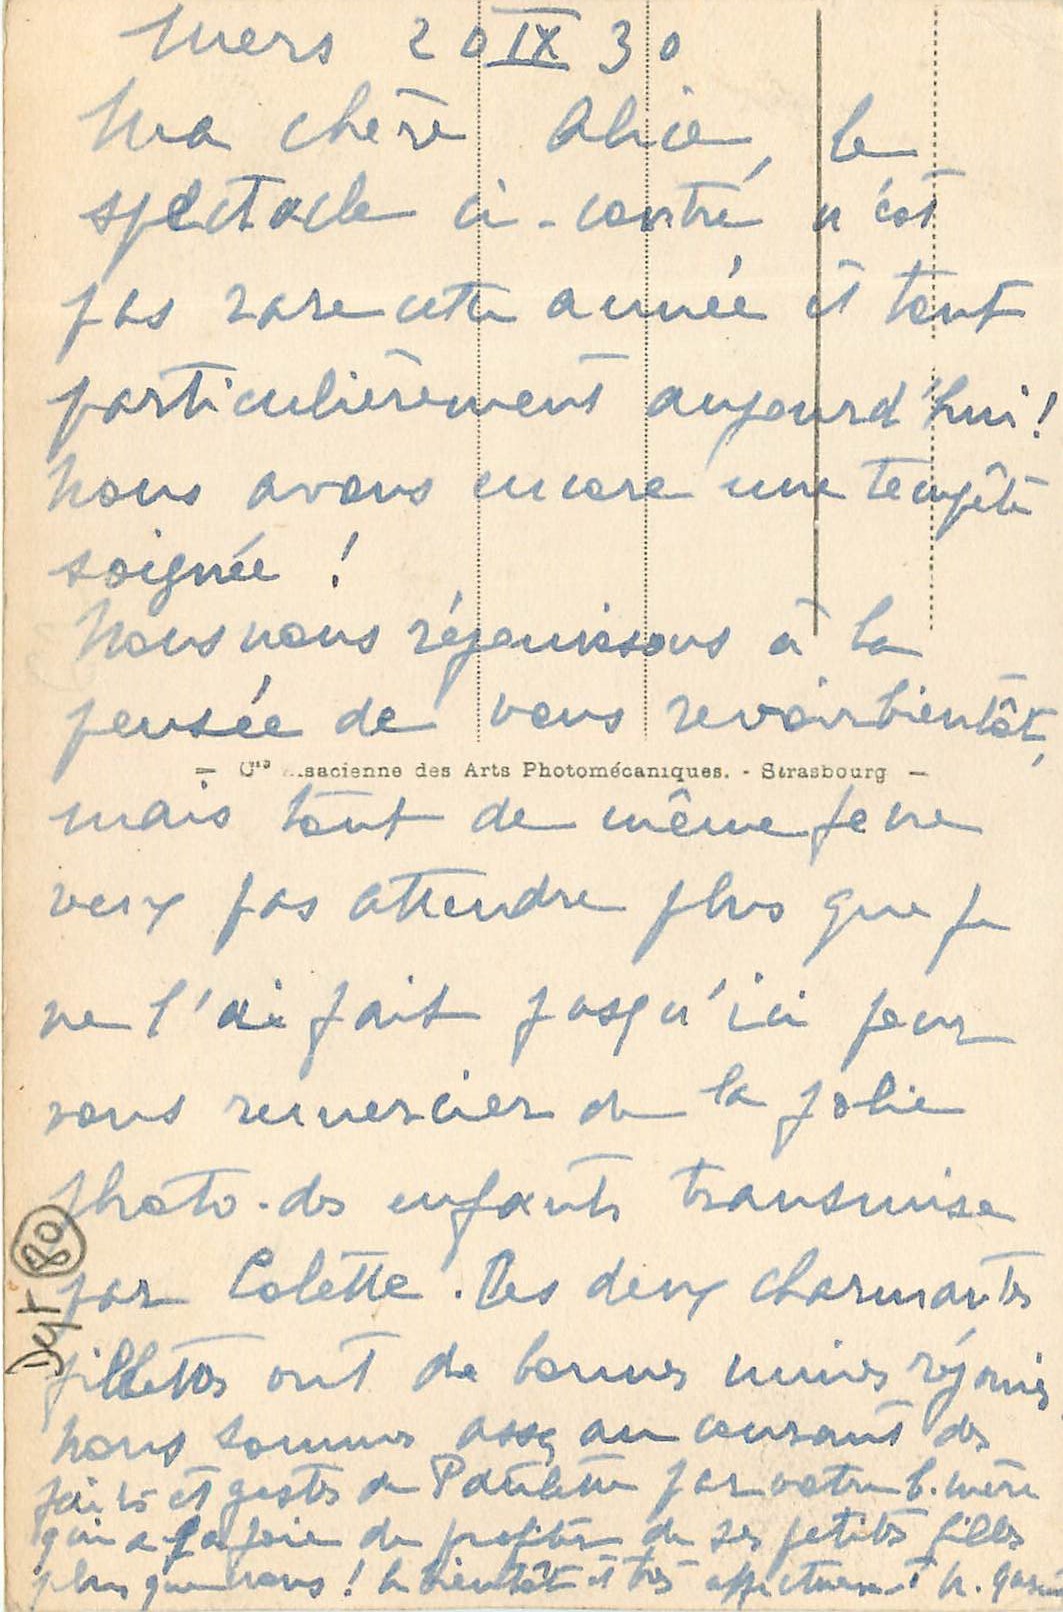 Mers 20 IX 30
Ma chère Alice, le
spectacle ci-contre n'est
pas rare cette année et tout
particulièrement aujourd'hui!
Nous avons encore une tempête
soignée!
Nous nous réjouissons à la
pensée de vous revoir bientôt,
— Cie Alsacienne des Arts Photomécaniques. - Strasbourg —
mais tout de même je ne
veux pas attendre plus que je
ne l'ai fait jusqu'ici pour
vous remercier de la jolie
photo des enfants transmise
par Colette. Les deux charmantes
fillettes ont de bonnes mines réjouies
Nous sommes assez au courant des
faits et gestes de Paulette par votre b. mère
qui a la joie de profiter de ses petites filles
plus que nous! A bientôt et très affectueust
80